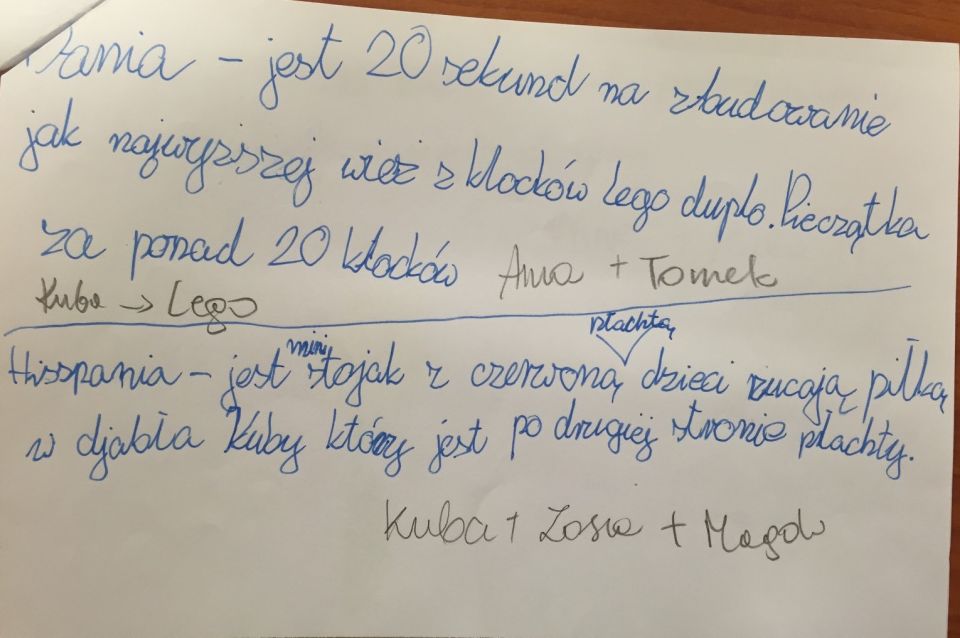 Dania - jest 20 sekund na zbudowanie
jak najwyższej wież z klocków Lego duplo. Pieczątka
za ponad 20 klocków Anna + Tomek
Kuba → Lego
plachtą
mini
Hisspania - jest stojak z czerwoną dzieci rucają piłką
w djabła Kuby który jest po drugiej stronie płachty.
Kuba + Zosia + Magda